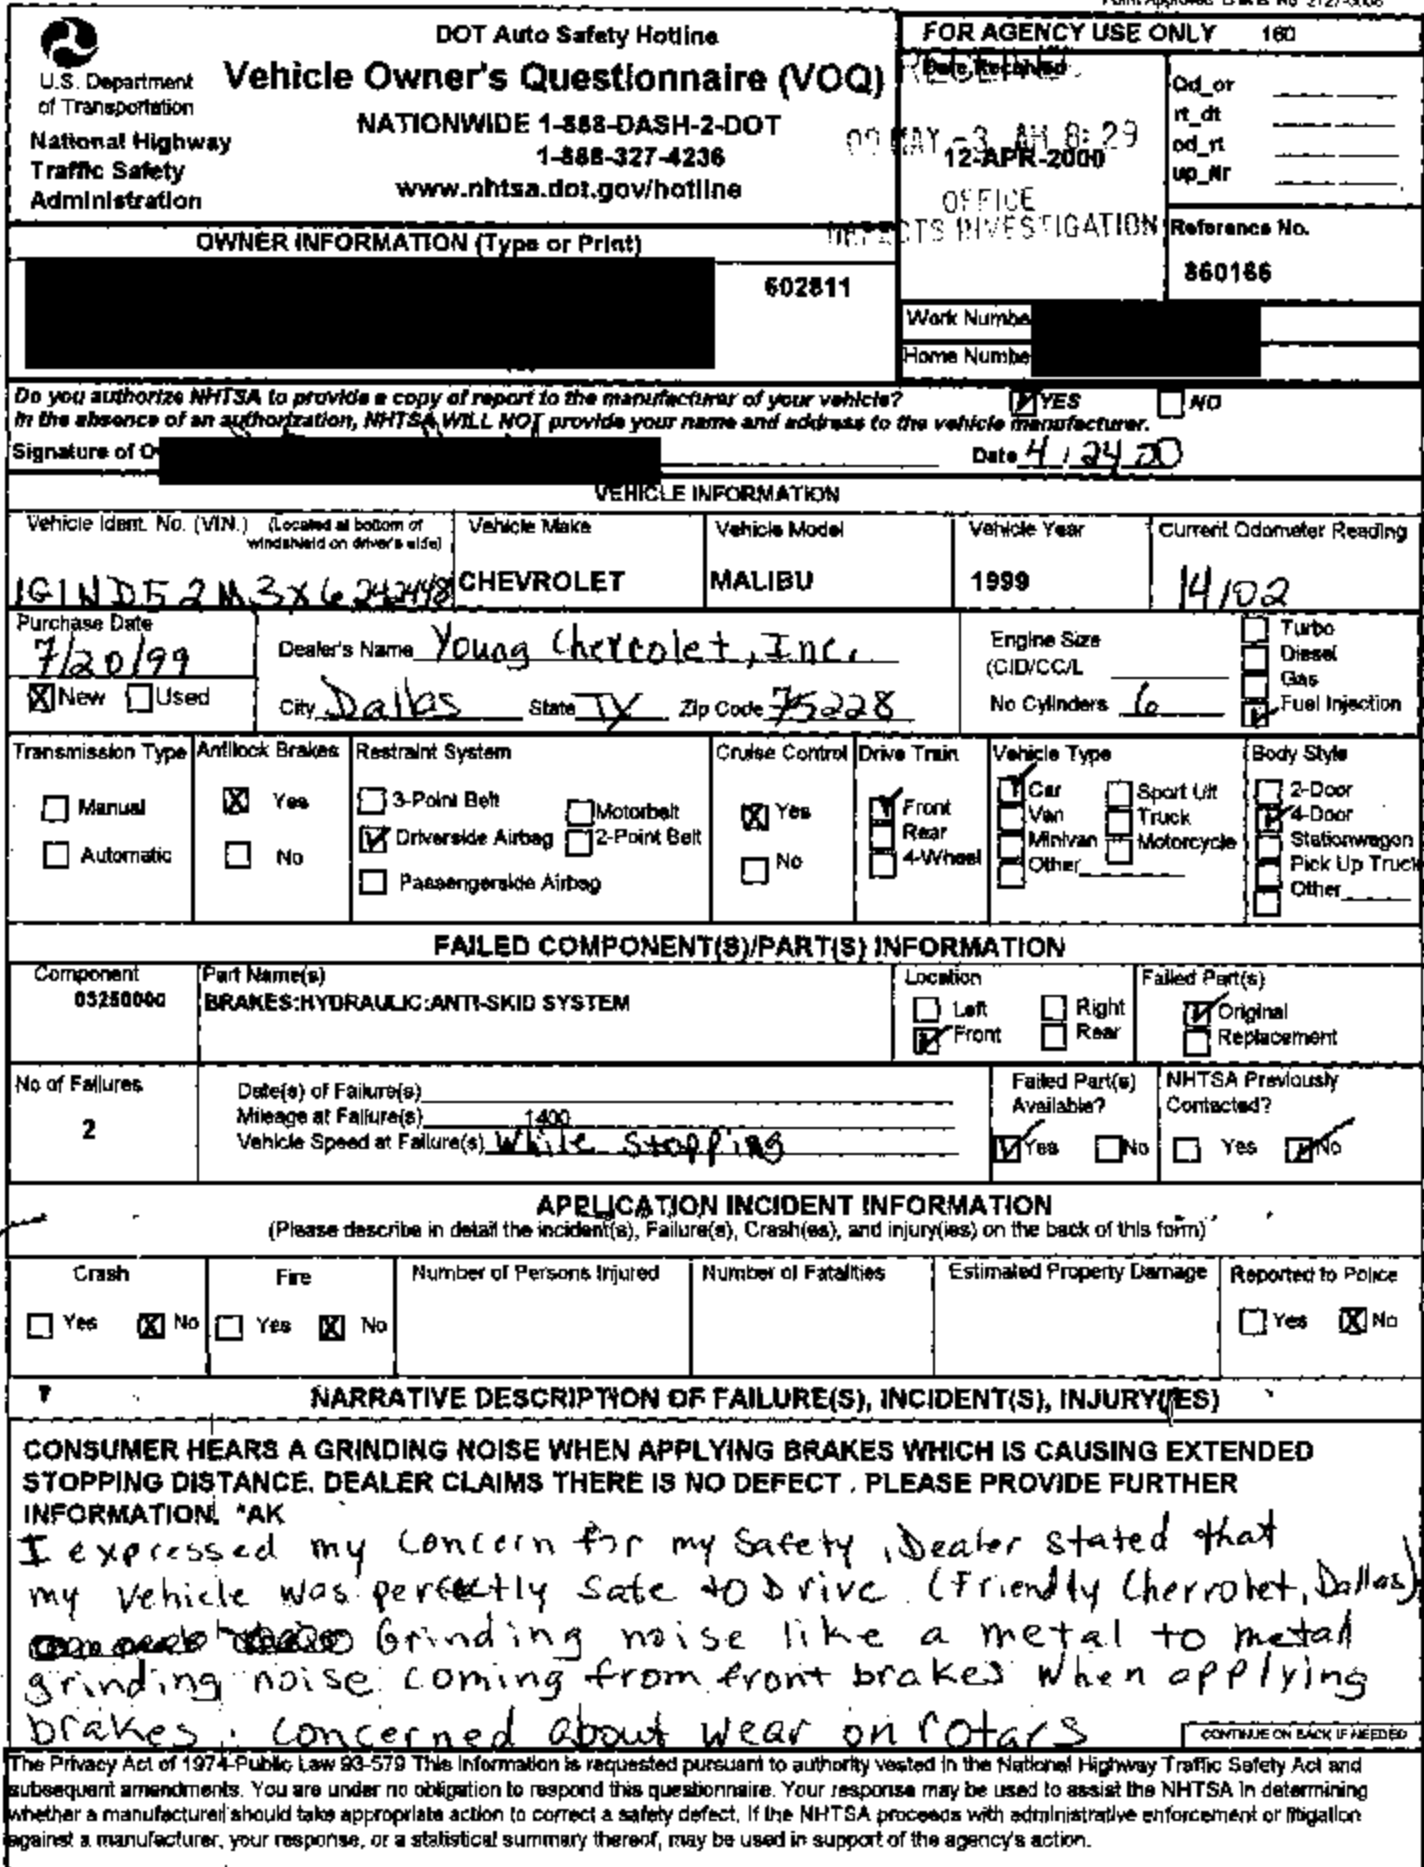 DOT Auto Safety Hotline
Vehicle Owner's Questionnaire (VOQ)
NATIONWIDE 1-888-DASH-2-DOT
1-888-327-4236
www.nhtsa.dot.gov/hotline
U.S. Department
of Transportation
National Highway
Traffic Safety
Administration
FOR AGENCY USE ONLY 160
Date Received
MAY -3 AM 8:29
12-APR-2000
OFFICE
DEFECTS INVESTIGATION
Od_or
rt_dt
od_rt
up_Nr
Reference No.
860166
OWNER INFORMATION (Type or Print)
602811
Work Numbe
Home Numbe
Do you authorize NHTSA to provide a copy of report to the manufacturer of your vehicle? YES NO
In the absence of an authorization, NHTSA WILL NOT provide your name and address to the vehicle manufacturer.
Signature of O Date 4/24/00
VEHICLE INFORMATION
Vehicle Ident. No. (VIN.) (Located at bottom of
windshield on driver's side)
1G1ND52M3X6242448
Vehicle Make
CHEVROLET
Vehicle Model
MALIBU
Vehicle Year
1999
Current Odometer Reading
14102
Purchase Date
7/20/99
New Used
Dealer's Name Young Chevrolet, Inc.
City Dallas State TX Zip Code 75228
Engine Size
(CID/CC/L
No Cylinders 6
Turbo
Diesel
Gas
Fuel Injection
Transmission Type
Manual
Automatic
Antilock Brakes
Yes
No
Restraint System
3-Point Belt
Driverside Airbag
Passengerside Airbag
Motorbelt
2-Point Belt
Cruise Control
Yes
No
Drive Train
Front
Rear
4-Wheel
Vehicle Type
Car
Van
Minivan
Other
Sport Ult
Truck
Motorcycle
Body Style
2-Door
4-Door
Stationwagon
Pick Up Truck
Other
FAILED COMPONENT(S)/PART(S) INFORMATION
Component
03250000
Part Name(s)
BRAKES:HYDRAULIC:ANTI-SKID SYSTEM
Location
Left Right
Front Rear
Failed Part(s)
Original
Replacement
No of Failures
2
Date(s) of Failure(s)
Mileage at Failure(s) 1400
Vehicle Speed at Failure(s) While Stopping
Failed Part(s)
Available?
Yes No
NHTSA Previously
Contacted?
Yes No
APPLICATION INCIDENT INFORMATION
(Please describe in detail the incident(s), Failure(s), Crash(es), and injury(ies) on the back of this form)
Crash
Yes No
Fire
Yes No
Number of Persons Injured
Number of Fatalities
Estimated Property Damage
Reported to Police
Yes No
NARRATIVE DESCRIPTION OF FAILURE(S), INCIDENT(S), INJURY(IES)
CONSUMER HEARS A GRINDING NOISE WHEN APPLYING BRAKES WHICH IS CAUSING EXTENDED
STOPPING DISTANCE. DEALER CLAIMS THERE IS NO DEFECT . PLEASE PROVIDE FURTHER
INFORMATION. *AK
I expressed my concern for my Safety, Dealer stated that
my vehicle was perfectly Safe to Drive (Friendly Chevrolet, Dallas)
Grinding noise like a metal to metal
grinding noise coming from front brakes when applying
brakes. Concerned about wear on rotars
CONTINUE ON BACK IF NEEDED
The Privacy Act of 1974-Public Law 93-579 This information is requested pursuant to authority vested in the National Highway Traffic Safety Act and
subsequent amendments. You are under no obligation to respond this questionnaire. Your response may be used to assist the NHTSA in determining
whether a manufacturer should take appropriate action to correct a safety defect. If the NHTSA proceeds with administrative enforcement or litigation
against a manufacturer, your response, or a statistical summary thereof, may be used in support of the agency's action.